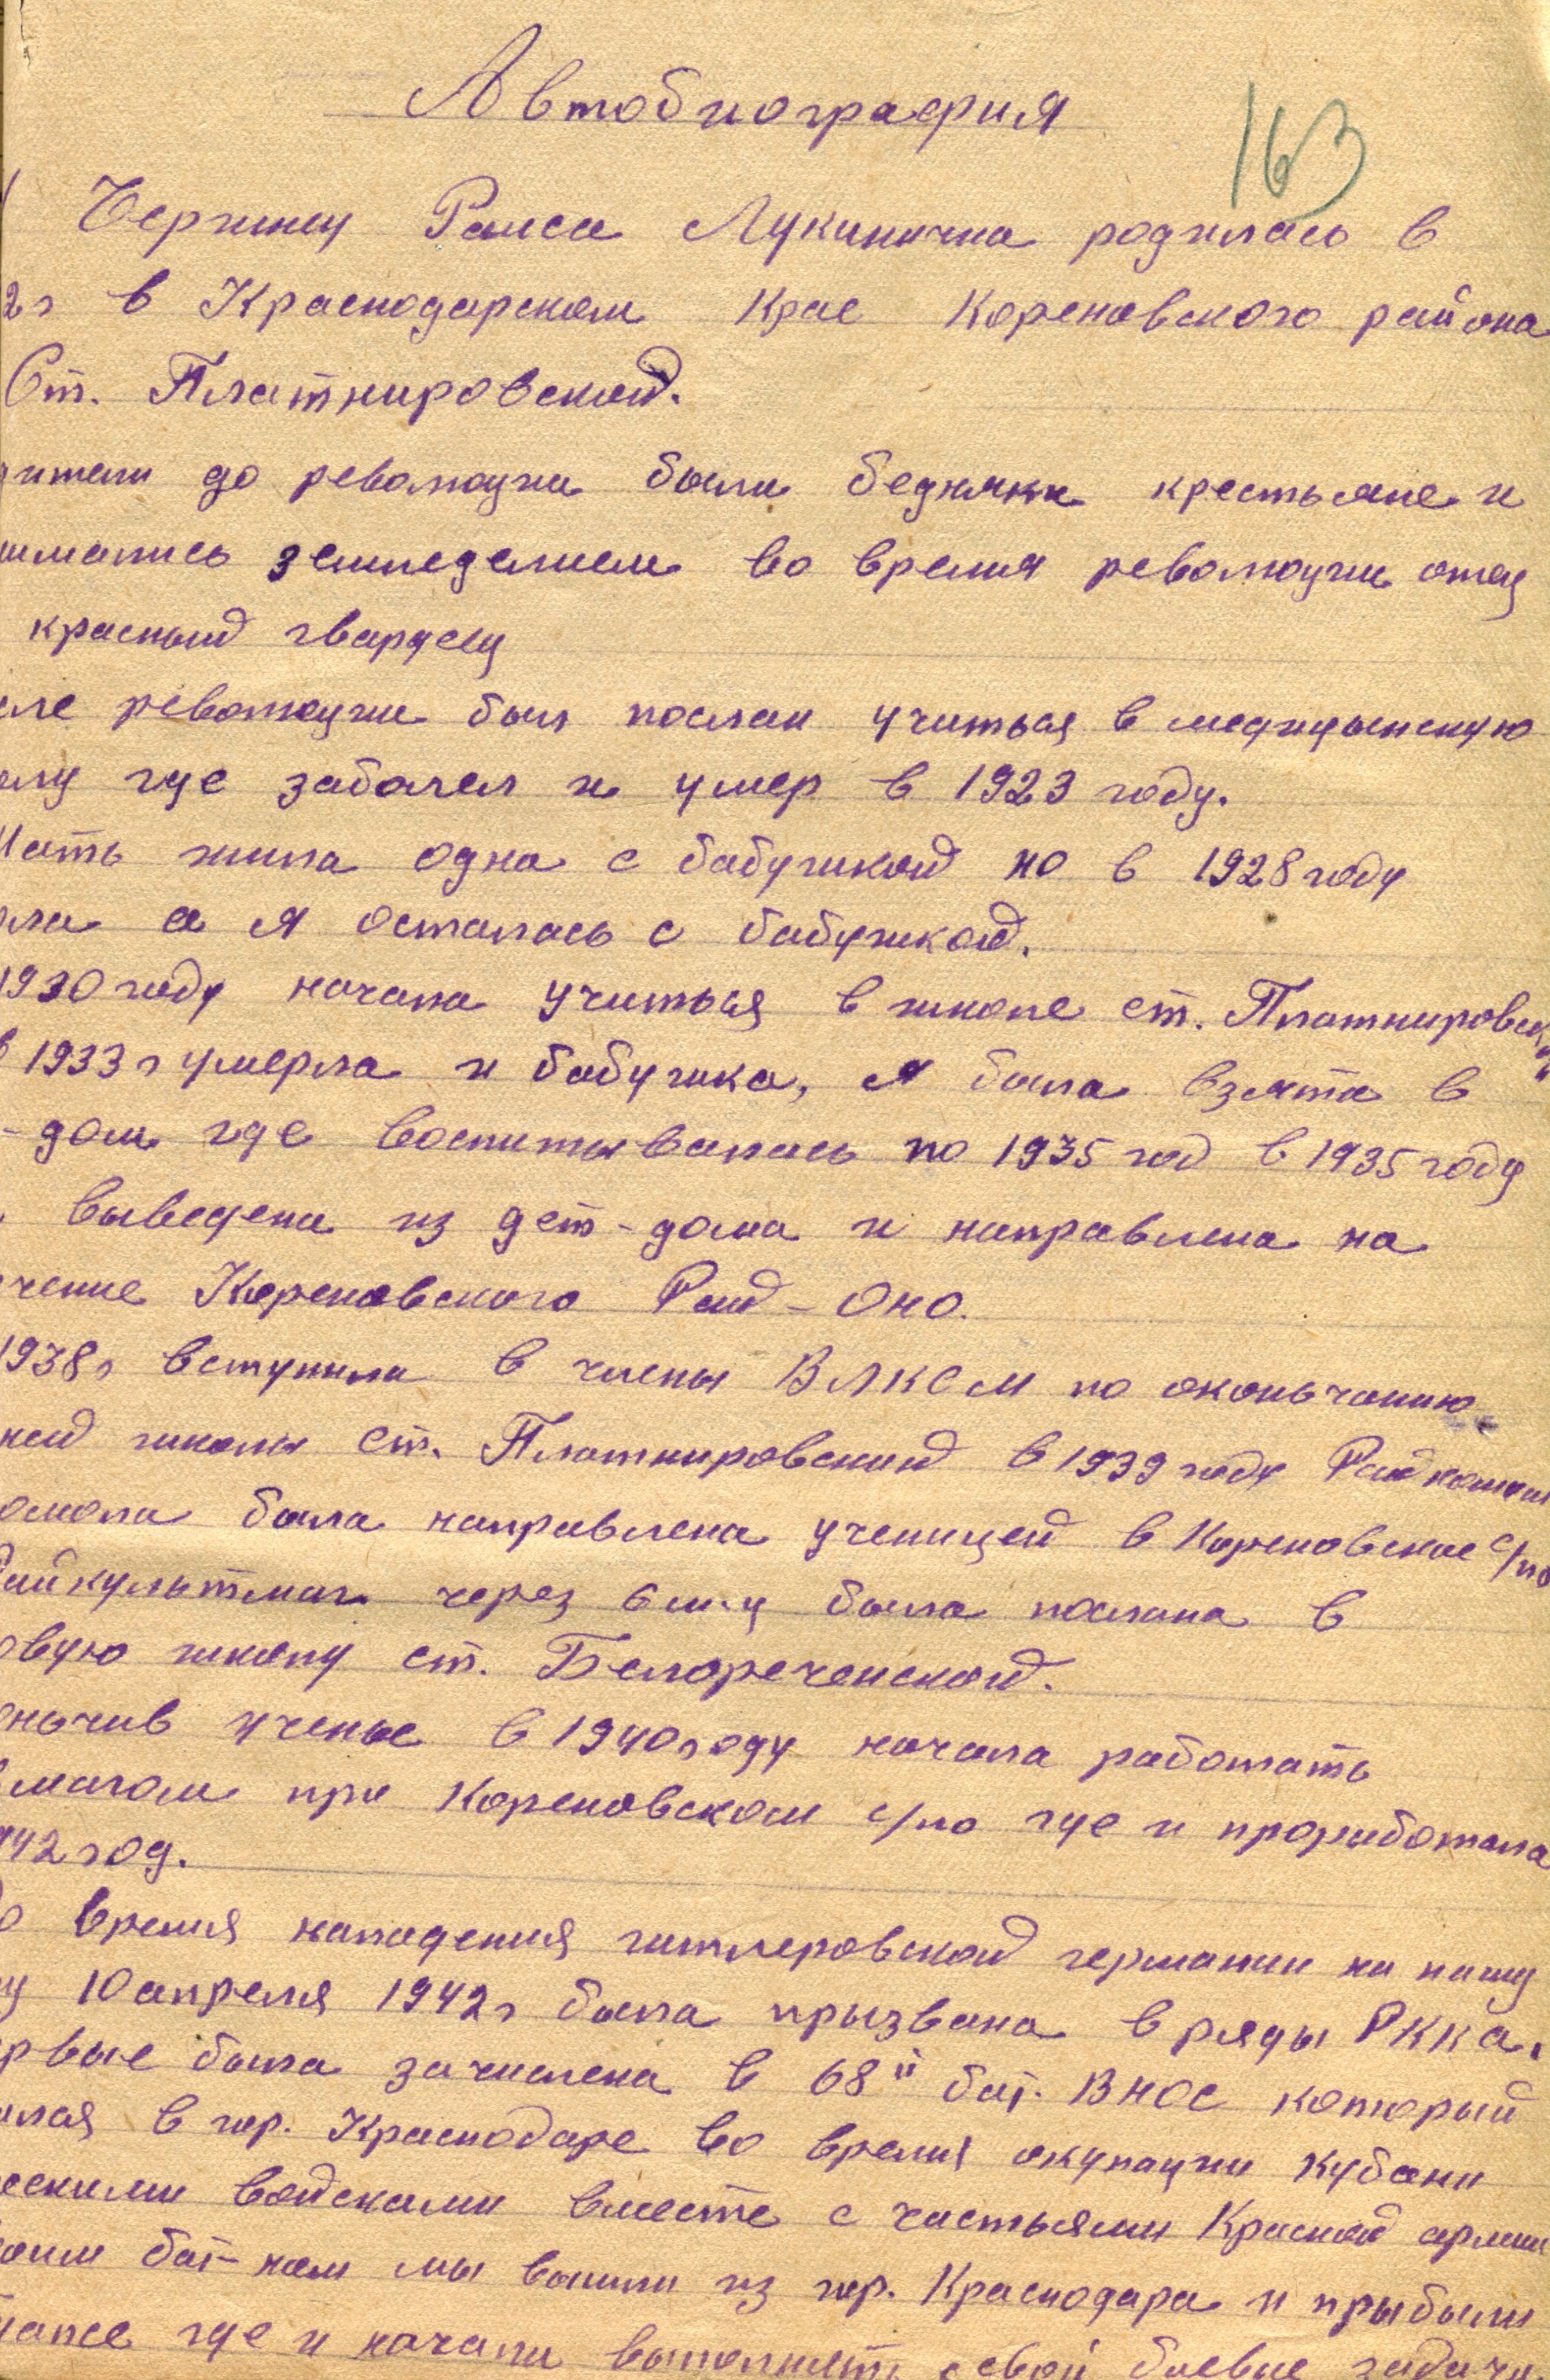 Автобиография
163
Чернец Раиса Лукинична родилась в
2г в Краснодарском Крае Кореновского района
Ст. Платнировской.
дители до революции были бедняки крестьяне и
имались земледелием во время революции отец
красный гвардеец
сле революции был послан учиться в медицынскую
олу где заболел и умер в 1923 году.
Мать жила одна с бабушкой но в 1928 году
рла а я осталась с бабушкой.
1930 году начала учиться в школе ст. Платнировск
в 1933 г умерла и бабушка, я была взята в
-дом где воспитывалась по 1935 год в 1935 году
выведена из дет-дома и направлена на
чение Кореновского Рай-Оно.
1938 г вступила в члены ВЛКСМ по оконьчанию
ней школы ст. Платнировский в 1939 году Райкомом
омола была направлена ученицей в Кореновское с/по
Райкультмаг через 6 м-ц была послана в
овую школу ст. Белореченской.
оньчив ученье в 1940 году начала работать
магом при Кореновском с/по где и проработала
942 год.
о время нападения гитлеровской германии на нашу
у 10 апреля 1942 г была прызвана в ряды РККА.
рвые была зачислена в 68й бат. ВНОС который
ился в гор. Краснодаре во время окупации Кубани
ескими войсками вместе с частьями Красной армии
оим бат-ном мы вышли из гор. Краснодара и прыбыли
апсе где и начали выполнять свои боевые задачи